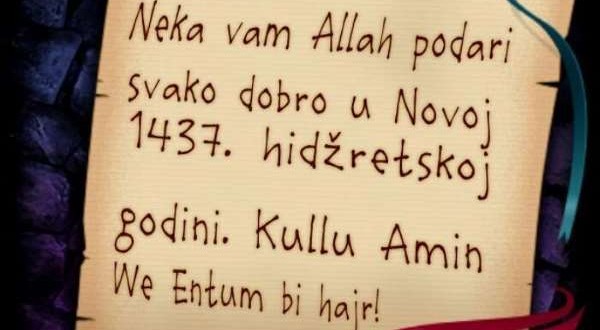 Neka vam Allah podari
svako dobro u Novoj
1437. hidžretskoj
godini. Kullu Amin
We Entum bi hajr!